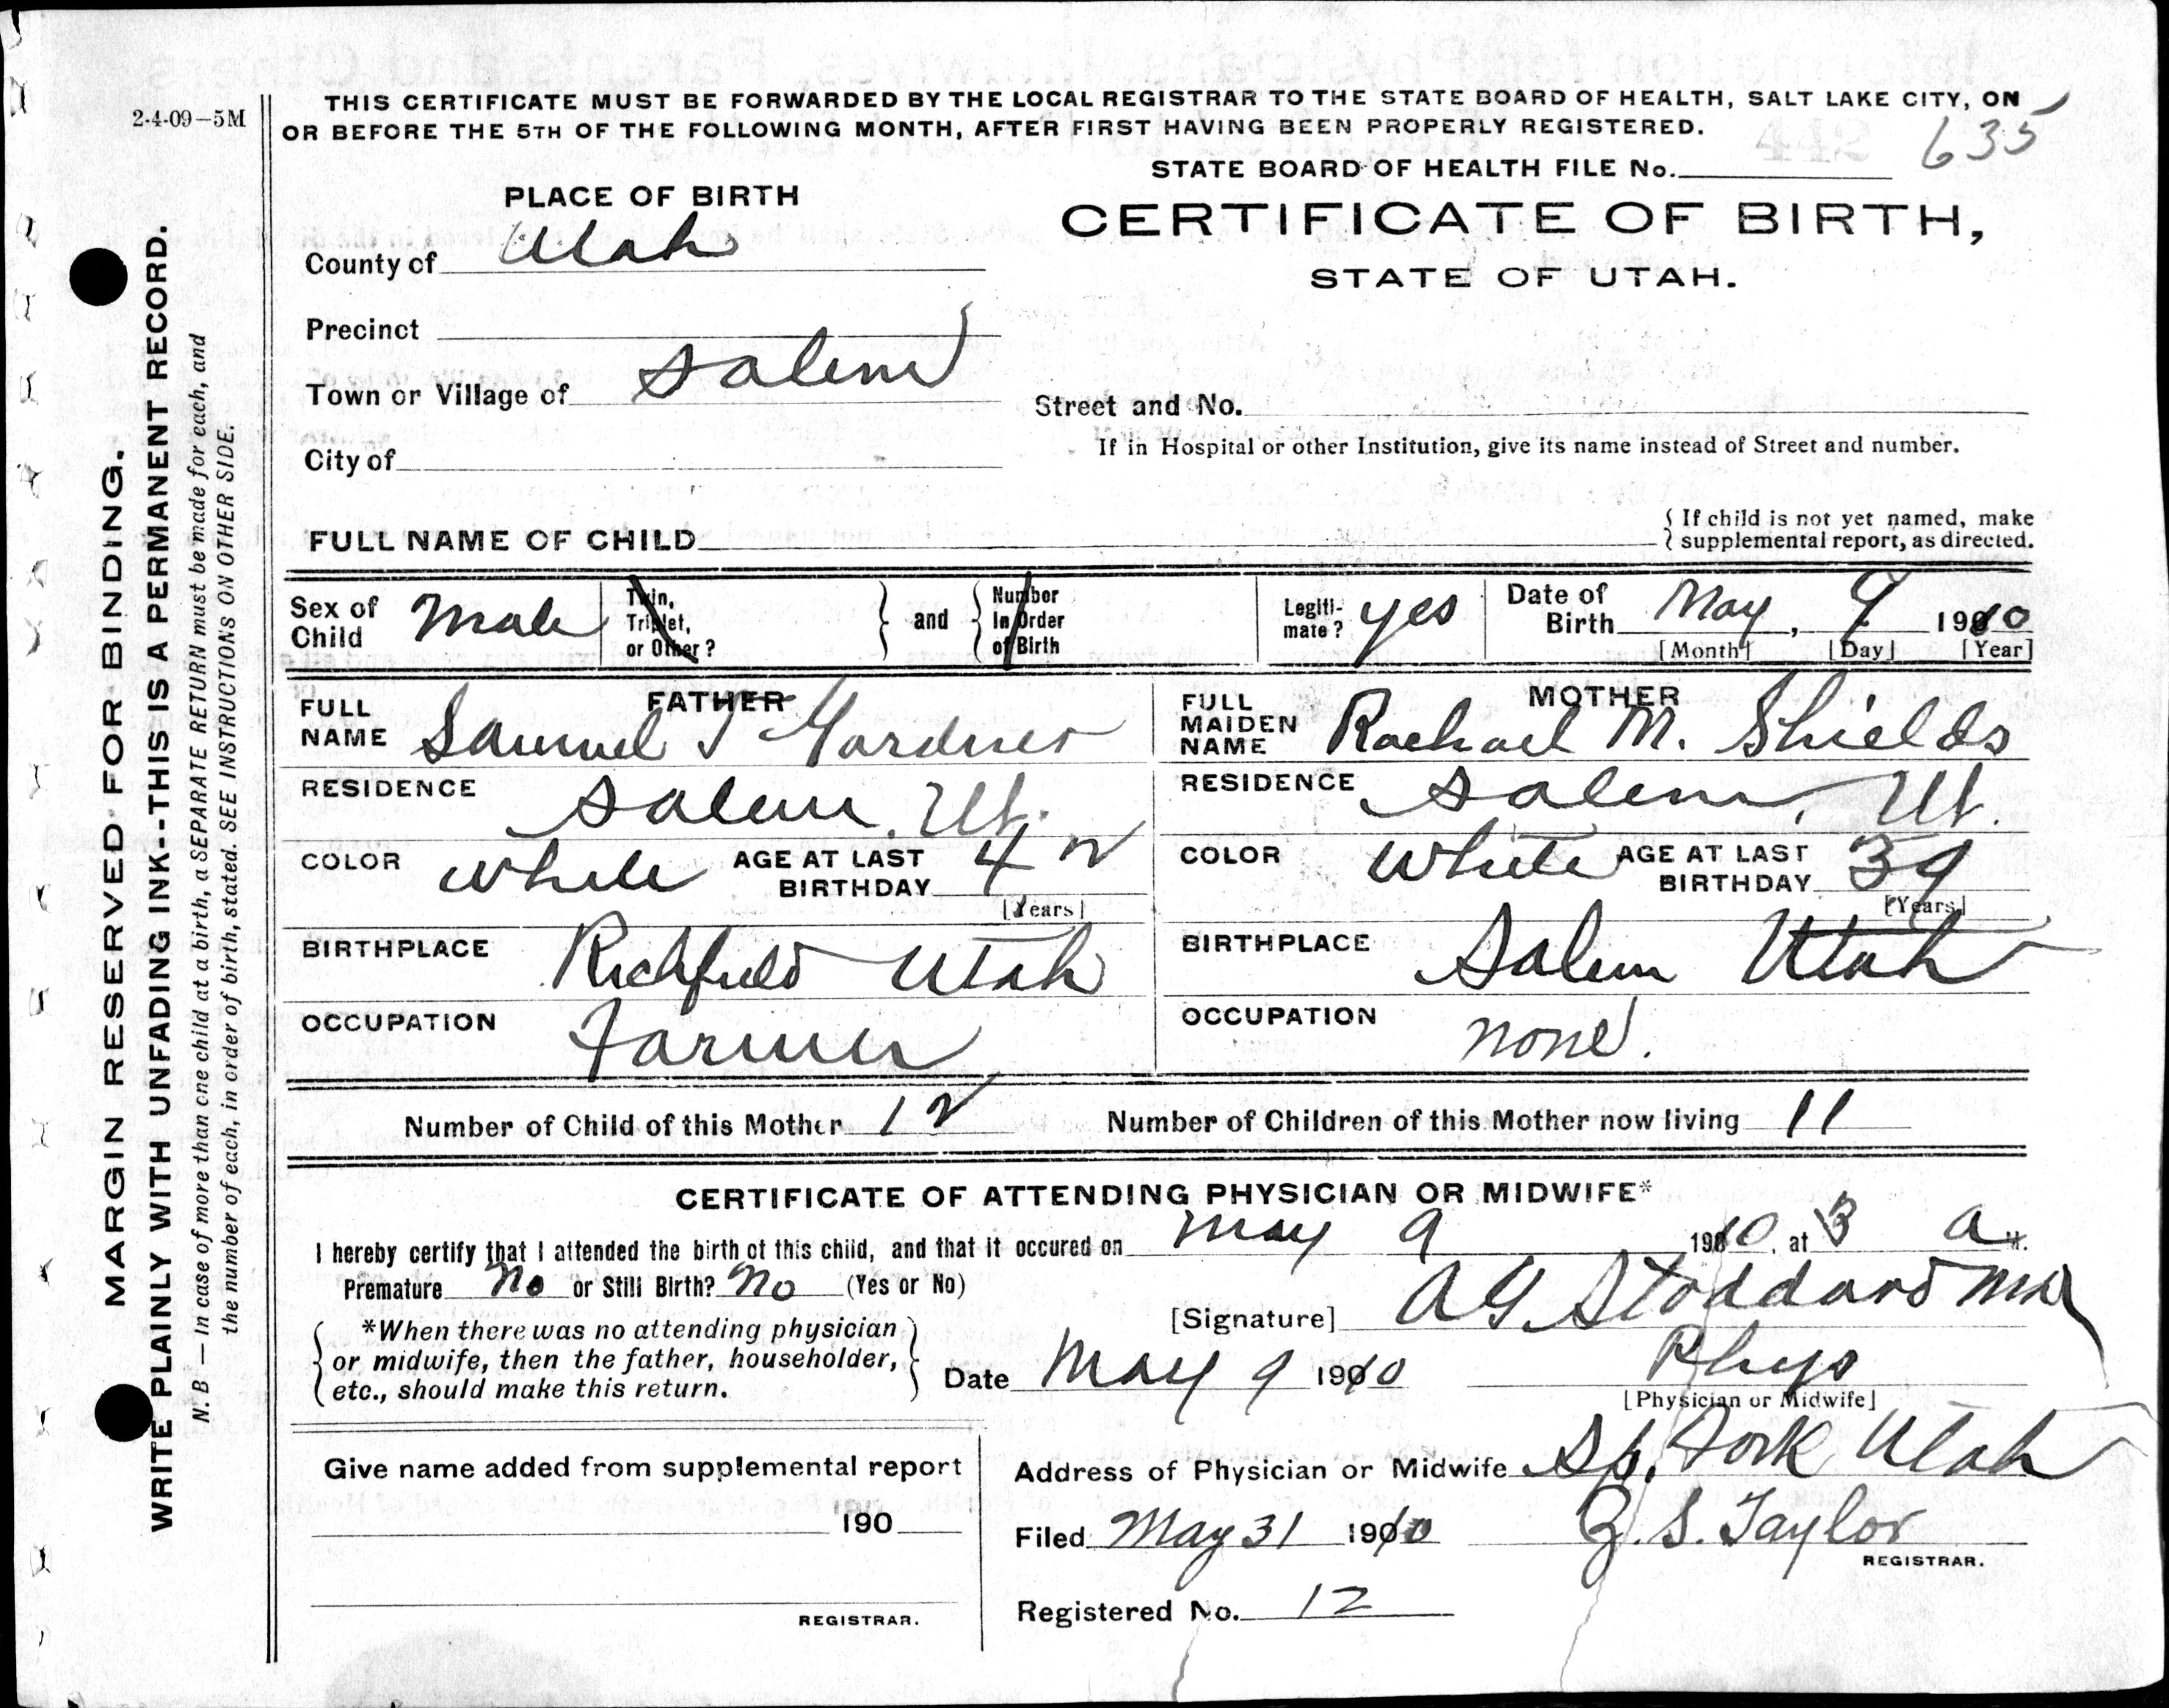 2-4-09—5M
THIS CERTIFICATE MUST BE FORWARDED BY THE LOCAL REGISTRAR TO THE STATE BOARD OF HEALTH, SALT LAKE CITY, ON
OR BEFORE THE 5TH OF THE FOLLOWING MONTH, AFTER FIRST HAVING BEEN PROPERLY REGISTERED.
635
STATE BOARD OF HEALTH FILE No.
PLACE OF BIRTH
CERTIFICATE OF BIRTH,
STATE OF UTAH.
County of Utah
Precinct
Town or Village of Salem
Street and No.
If in Hospital or other Institution, give its name instead of Street and number.
City of
FULL NAME OF CHILD
{ If child is not yet named, make
supplemental report, as directed.
Sex of Child Male
Twin, Triplet, or Other?
and
Number In Order of Birth
Legitimate? yes
Date of Birth May, 9 1910
[Month] [Day] [Year]
FATHER
FULL NAME Samuel T Gardner
RESIDENCE Salem, Ut.
COLOR White AGE AT LAST BIRTHDAY 42
[Years]
BIRTHPLACE Richfield Utah
OCCUPATION Farmer
MOTHER
FULL MAIDEN NAME Rachael M. Shields
RESIDENCE Salem, Ut.
COLOR White AGE AT LAST BIRTHDAY 39
[Years]
BIRTHPLACE Salem Utah
OCCUPATION none.
Number of Child of this Mother 12 Number of Children of this Mother now living 11
CERTIFICATE OF ATTENDING PHYSICIAN OR MIDWIFE*
I hereby certify that I attended the birth of this child, and that it occured on May 9 1910, at 3 a M.
Premature No or Still Birth? No (Yes or No)
[Signature] A G Stoddard MD
*When there was no attending physician
or midwife, then the father, householder,
etc., should make this return.
Date May 9 1910 Phys
[Physician or Midwife]
Give name added from supplemental report
190
REGISTRAR.
Address of Physician or Midwife Sp. Fork Utah
Filed May 31 1910 Z. S. Taylor
REGISTRAR.
Registered No. 12
MARGIN RESERVED FOR BINDING.
WRITE PLAINLY WITH UNFADING INK--THIS IS A PERMANENT RECORD.
N. B — In case of more than one child at a birth, a SEPARATE RETURN must be made for each, and
the number of each, in order of birth, stated. SEE INSTRUCTIONS ON OTHER SIDE.